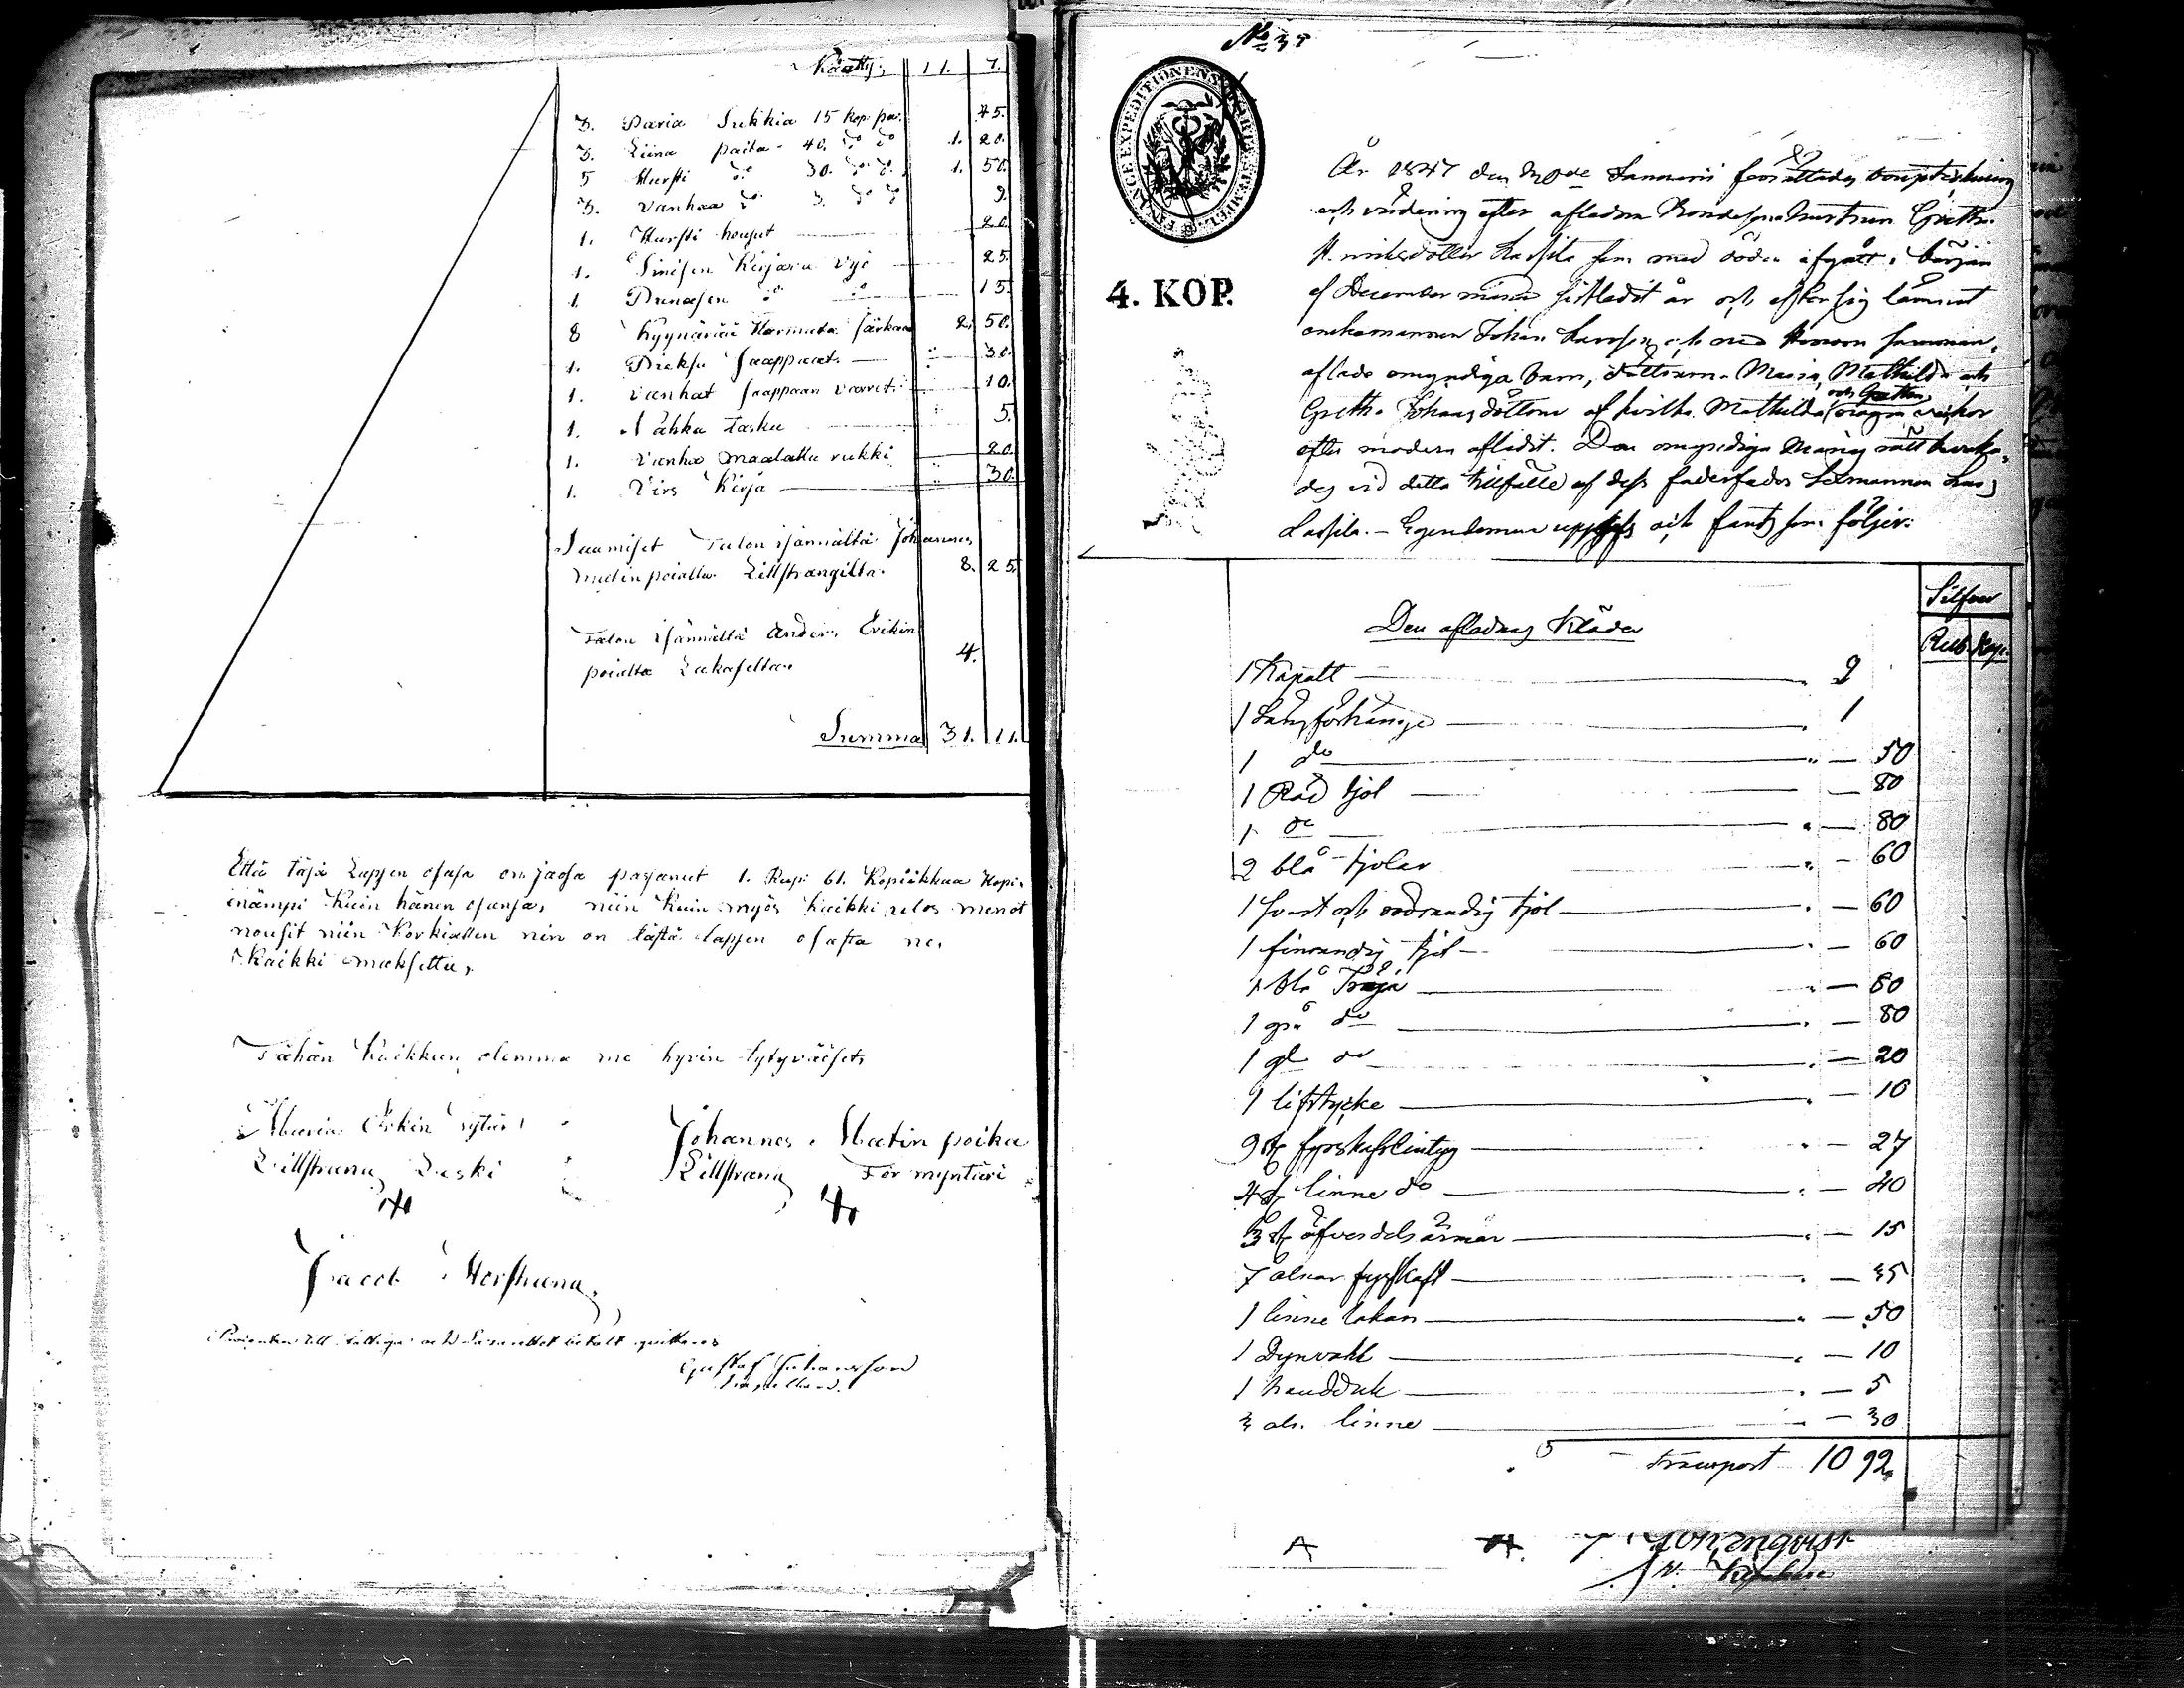 Käätty, 11. 7.
3. Paria Sukkia 15 kop pa. 45.
3. Liina paita - 40. do do 1. 20.
5 Hursti do 30. do do 1. 50.
3. Vanhaa do 3. do do 9.
1. Hursti housut 20.
1. Sinisen Kirjava Vyö 25.
1. Punasen do do 15.
8 Kyynärää Harmata Sarkaa 2. 50.
1. Pieksu Saappaat. 30.
1. Vanhat Saappaan Varret. 10.
1. Nahka tasku 5.
1. Vanha maalattu rukki 20.
1. Virs Kirja 30.
Saamiset Talon isännältä Johannes
Matinpoialta Lillstrangilta. 8. 25.
Talon isännältä Anders Erikin
poialta Lukaselta. 4.
Summa 31. 11.
Että täsä Lapsen osasa on jaosa pasjanut 1. Rup: 61. Kopiikkaa Hopi.
enämpi Kuin hänen osansa, niin Kuin myös Kaikki ulos menot
nousit niin Korkiallen nin on tästä lapsen osasta ne
Kaikki maksettu,
Tähän Kaikkeen olemma me hyvin tytyväiset,
Maria Erkin tytär
Lillstrang Leski
Johannes Matin poika
Lillstrang För myntäri
Jacob Storstrang
Gustaf Johansson
No 37
FINANCE EXPEDITIONENS CHARTÆ STEMPEL
4. KOP.
År 1847 den 20de Januarii förrättades bouptekning
och värdering efter afledna Bondesonehustrun Greta
Henriksdotter Lassila som med döden afgått i början
af December månad sistledit år och efter sig lämnat
enkemannen Johan Larsson och med honom samman,
aflade omyndiga barn, döttrarne Maria, Mathilda och
Greta Johansdöttrar af hvilka Mathilda och Greta några veckor
efter modren aflidit. Den omyndiga Marias rätt bevaka,
des vid detta tillfälle af dess faderfader Lars
Lassila. – Egendomen uppgafs och fants som följer:
Silfver
Den aflednas Kläder
Rub. Kop.
1 Kapott 2
1 Långförhänge 1
1 do — 50
1 Röd kjol — 80
1 do — 80
2 blå kjolar — 60
1 svart och rödrandig kjol — 60
1 finrandig kjol — 60
1 blå Tröja — 80
1 grå do — 80
1 gl do — 20
1 lifstycke — 10
9 st fyrskafslintyg — 27
4 st linne do — 40
3 st öfverdelsärmar — 15
7 alnar fyrskaft — 35
1 linne lakan — 50
1 Dynvahl — 10
1 handduk — 5
3 aln. linne — 30
transport 10 92